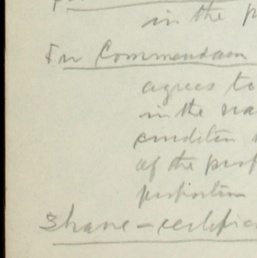 in the p
In Commendam
agrees to
in the na
condition
of the prof
proportion
Share-certific